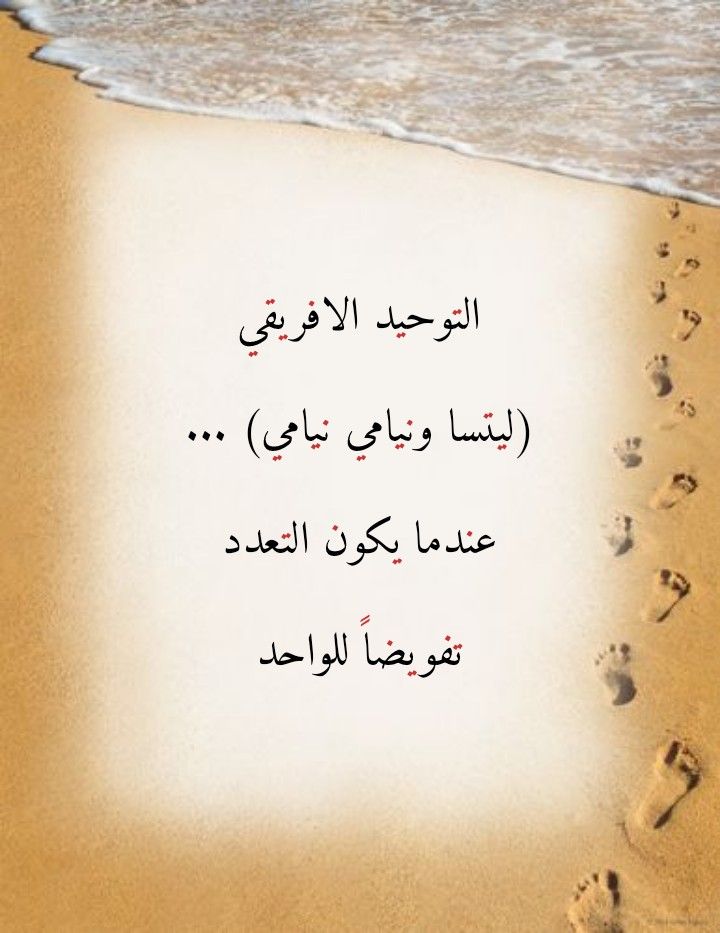 التوحيد الافريقي
(ليتسا ونيامي نيامي) ...
عندما يكون التعدد
تفويضاً للواحد